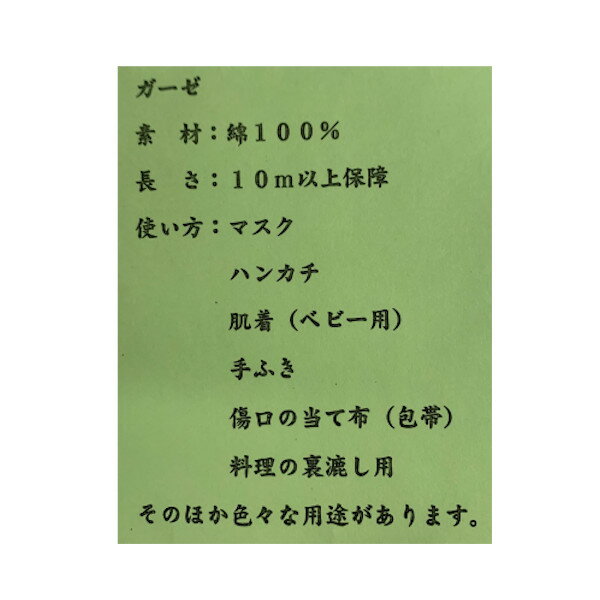 ガーゼ
素　材：綿１００％
長　さ：１０ｍ以上保障
使い方：マスク
ハンカチ
肌着（ベビー用）
手ふき
傷口の当て布（包帯）
料理の裏漉し用
そのほか色々な用途があります。